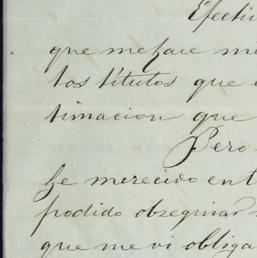 Efecti
que me hace me
los títulos que e
timacion que
Pero
he merecido ent
podido obsequiar
que me vi obliga